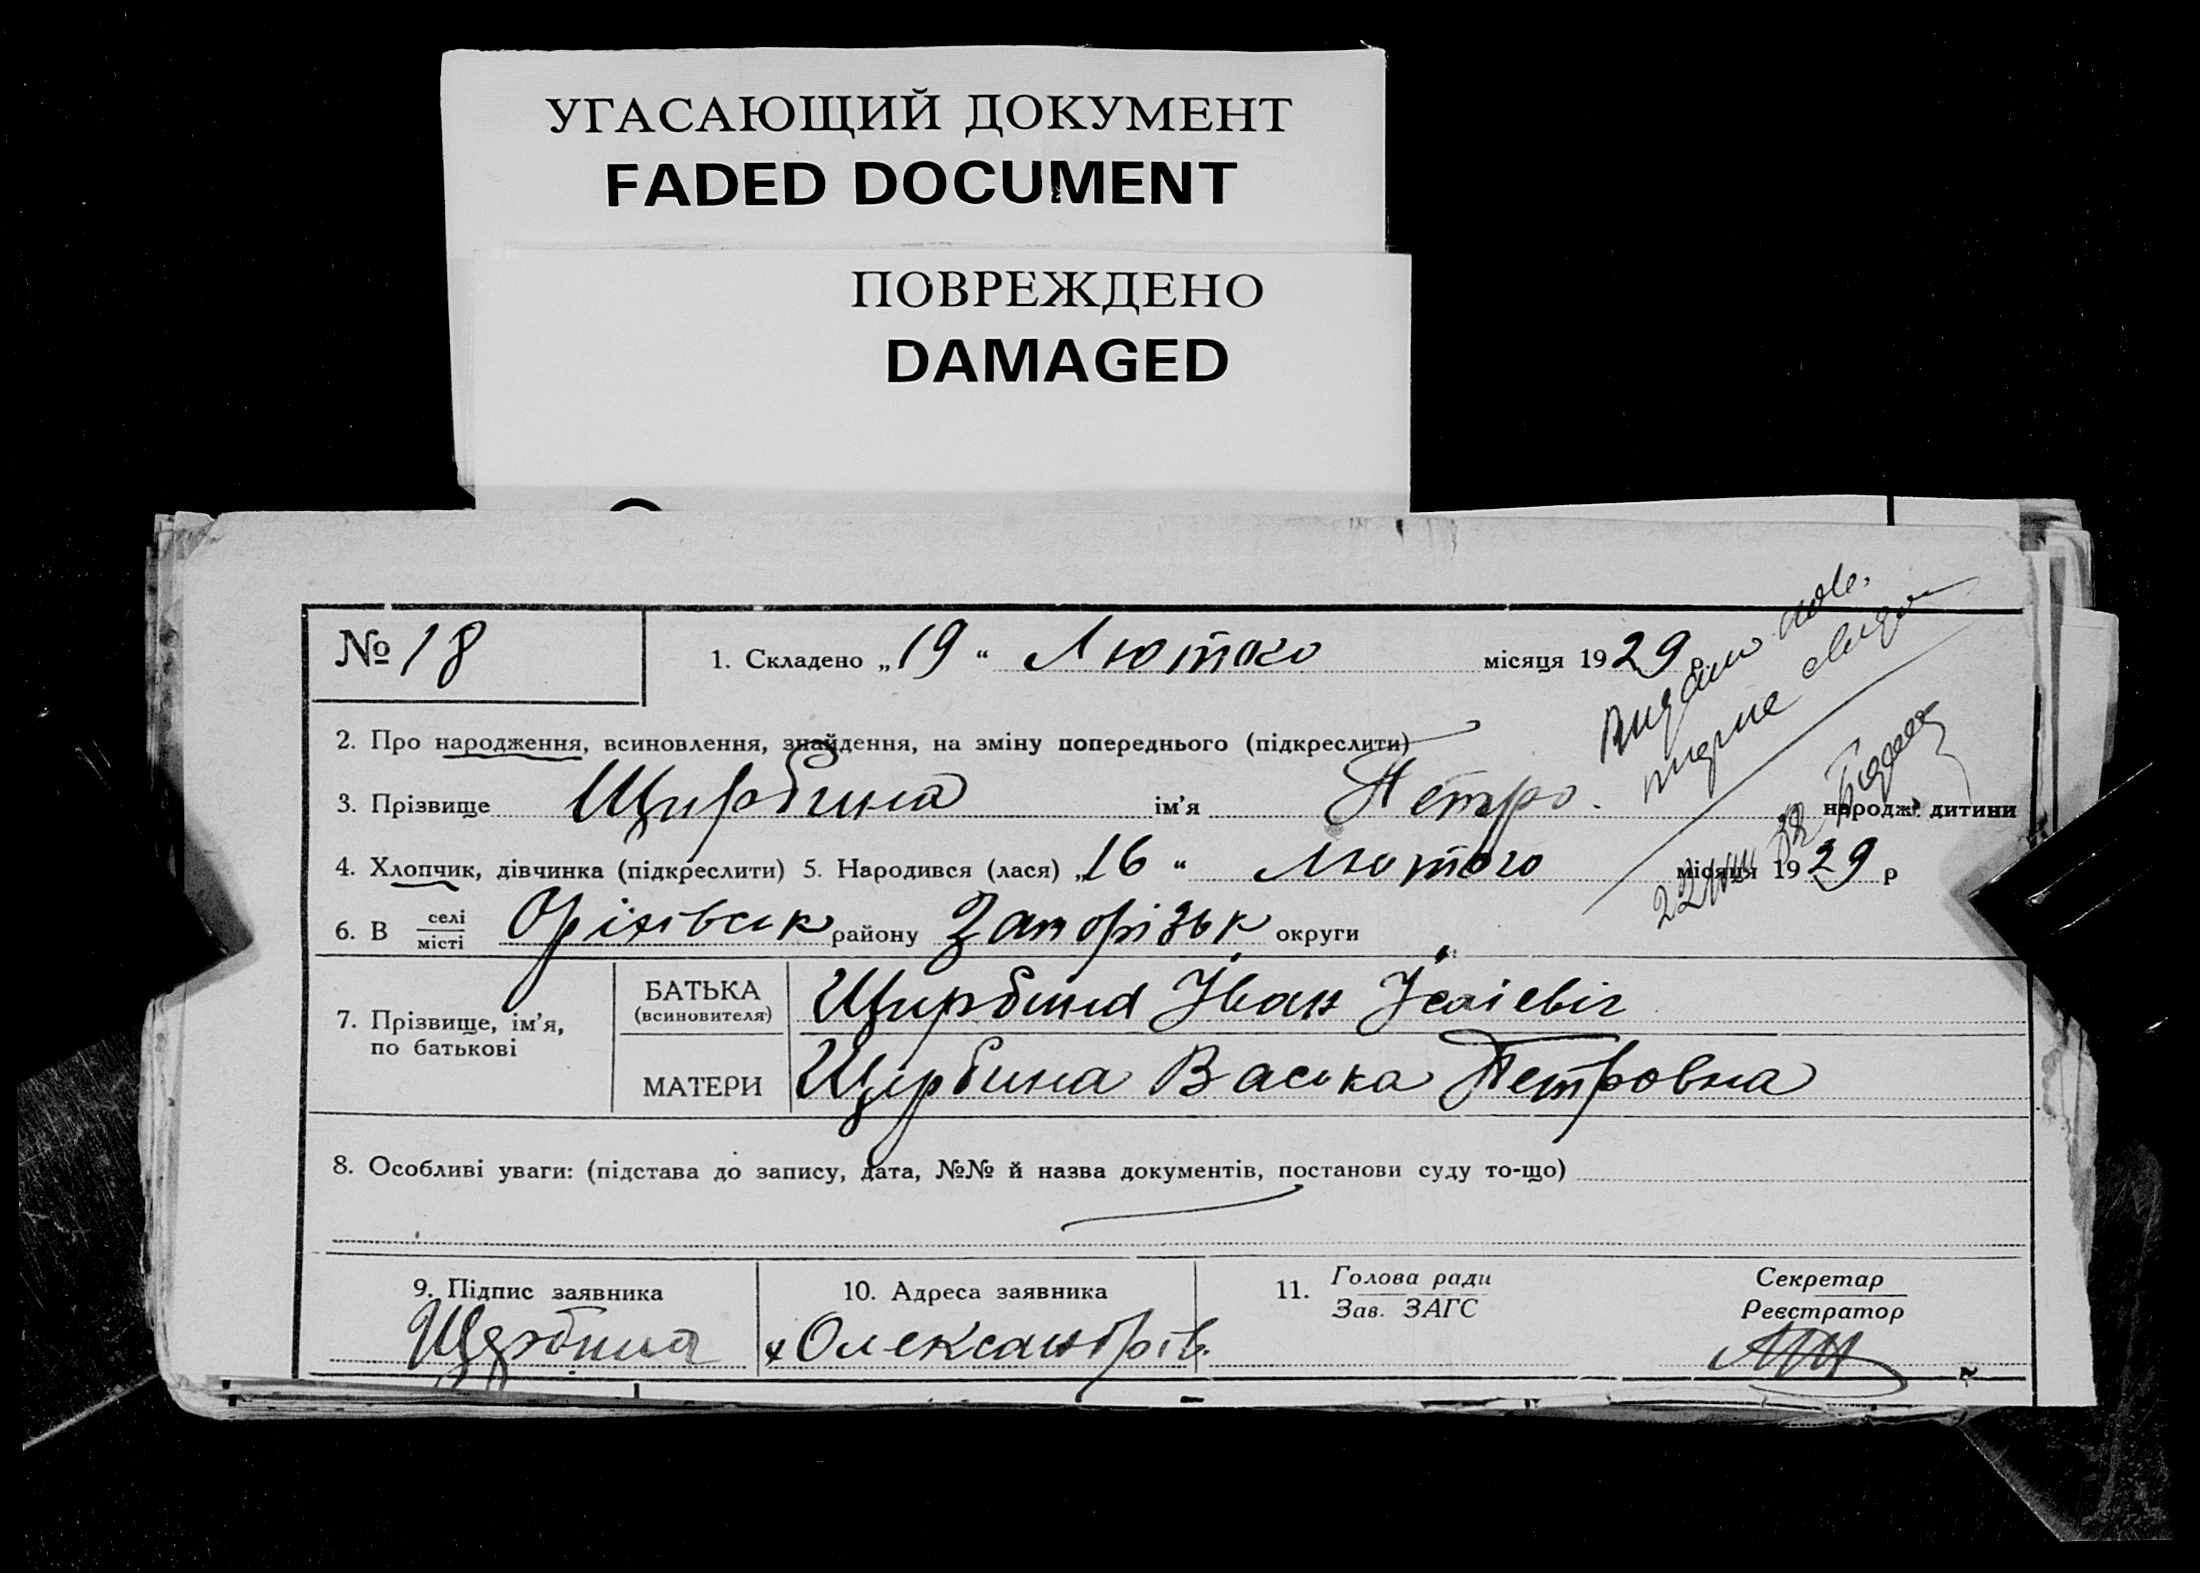 УГАСАЮЩИЙ ДОКУМЕНТ
FADED DOCUMENT
ПОВРЕЖДЕНО
DAMAGED
№ 18
1. Складено „19“ Лютого місяця 1929
2. Про народження, всиновлення, знайдення, на зміну попереднього (підкреслити)
3. Прізвище Щирбина ім’я Петро народж. дитини
4. Хлопчик, дівчинка (підкреслити) 5. Народився (лася) „16“ Лютого місяця 1929 р
6. В селі/місті Оріхівськ району Запорізьк округи
7. Прізвище, ім’я, по батькові
БАТЬКА (всиновителя) Щирбина Іван Ісаієвіч
МАТЕРИ Щирбина Васька Петровна
8. Особливі уваги: (підстава до запису, дата, №№ й назва документів, постанови суду то-що)
9. Підпис заявника
Щербина
10. Адреса заявника
Олександрів.
11. Голова ради
Зав. ЗАГС
Секретар
Реєстратор